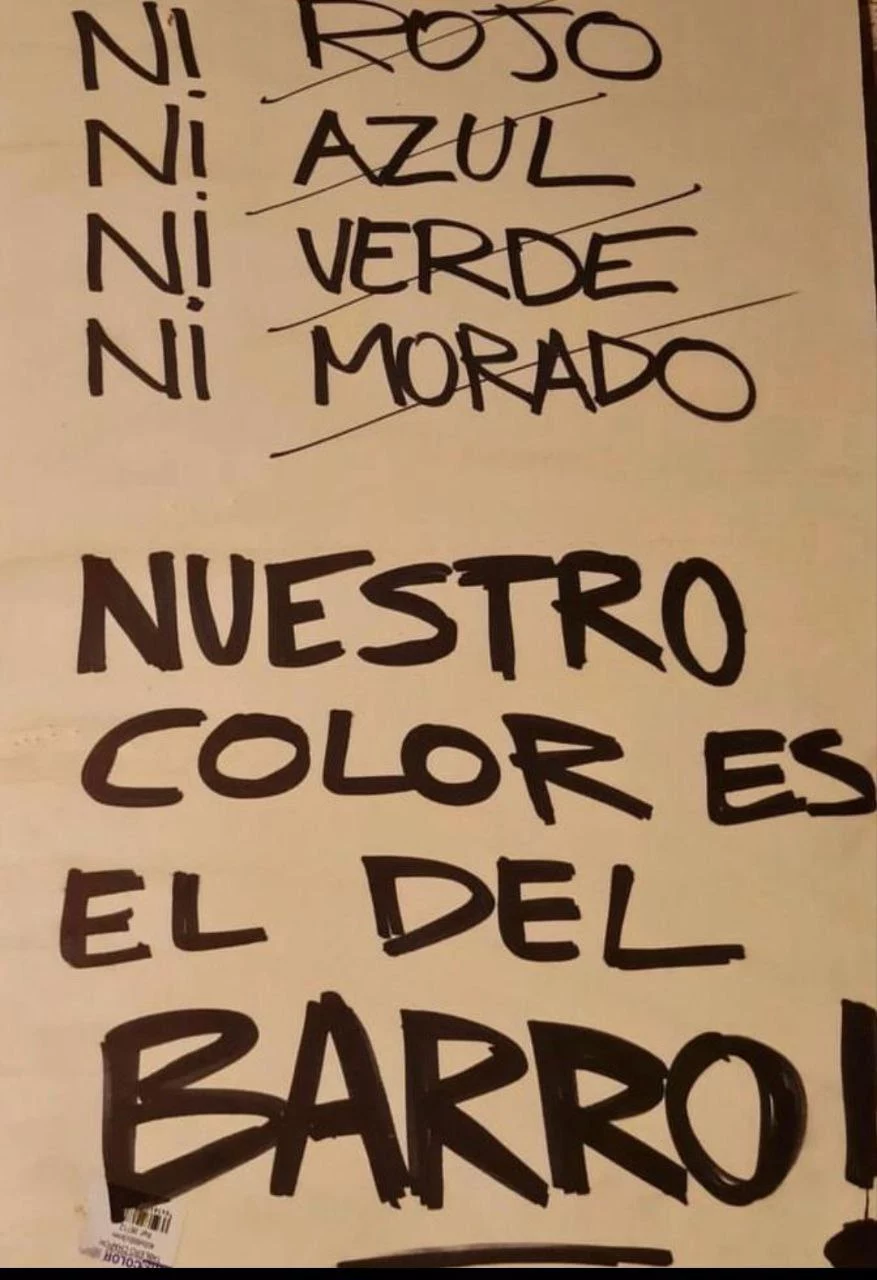 NI ROJO
NI AZUL
NI VERDE
NI MORADO
NUESTRO
COLOR ES
EL DEL
BARRO!